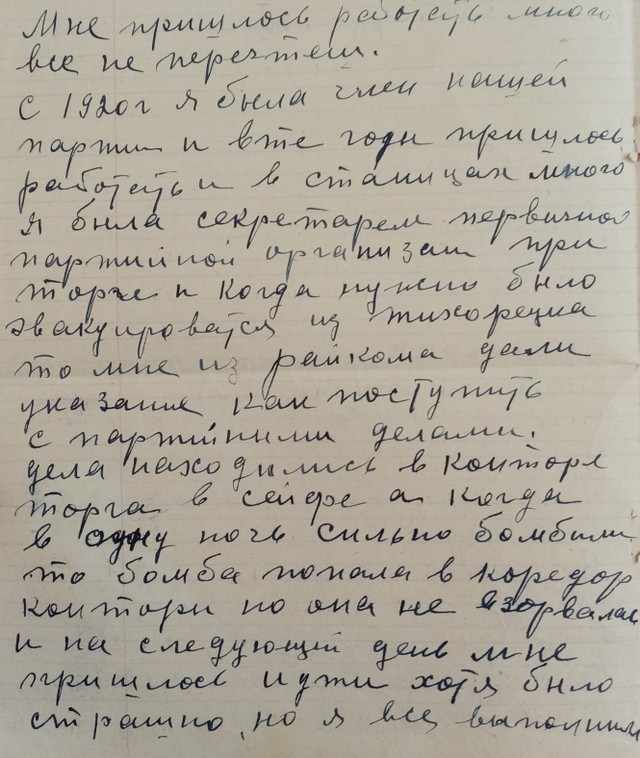 Мне пришлось работать много
все не перечтеш.
С 1920г я была член нашей
партии и в те годы пришлось
работать и в станицах много
я была секретарем первичной
партийной организаци при
торге и когда нужно было
эвакуироватся из тихорецка
то мне из райкома дали
указание как поступить
с партийными делами.
дела находились в конторе
торга в сейфе а когда
в одну ночь сильно бомбили
то бомба попала в коредор
конторы но она не взорвалась
и на следующий день мне
пришлось идти хотя было
страшно, но я все выполнила